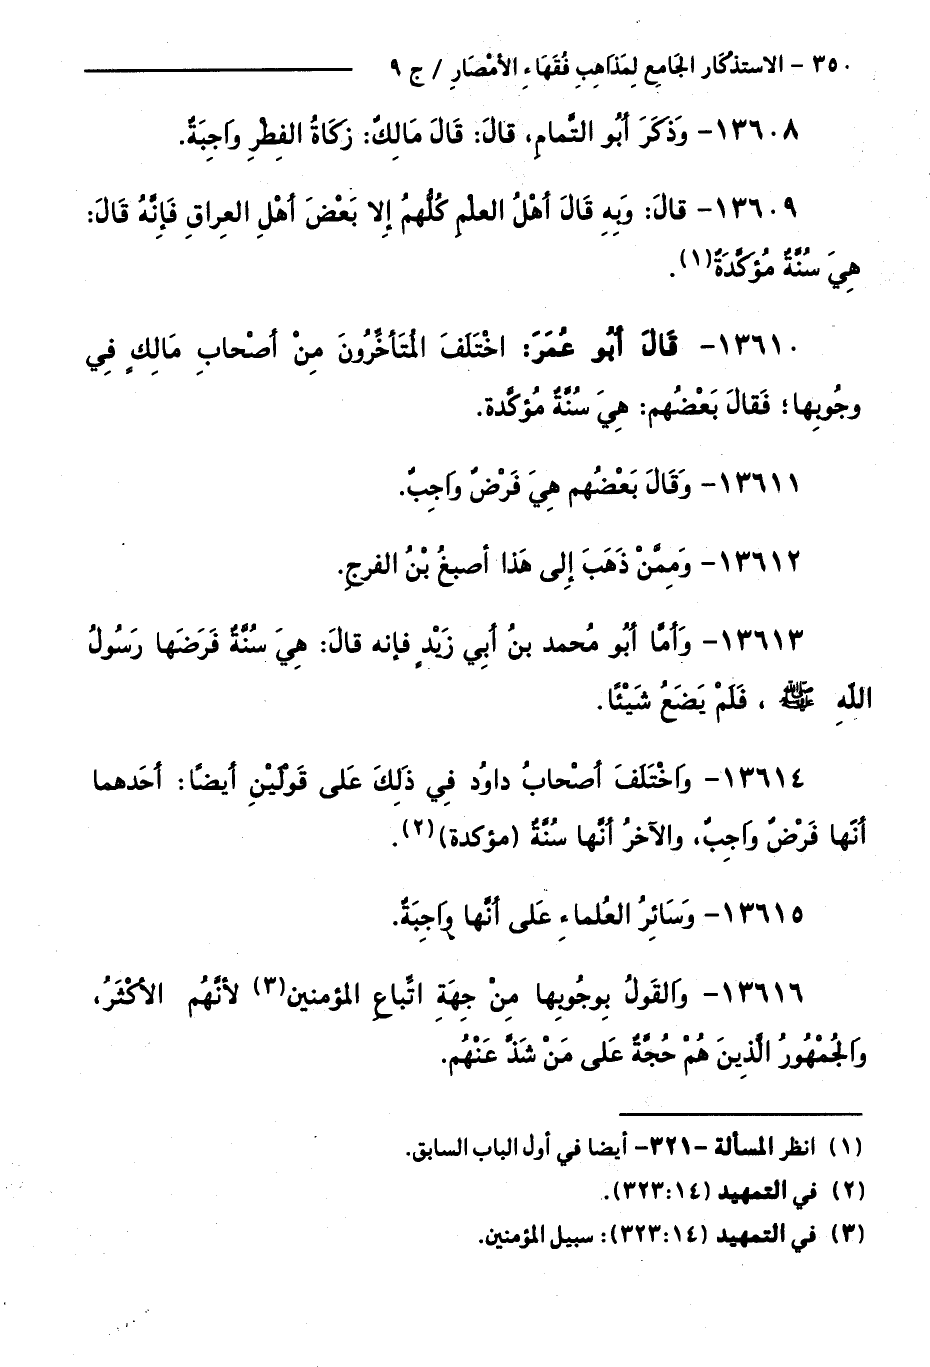 ٣٥٠ - الاستذكار الجَامع لِمَذَاهِبِ فُقَهَاءِ الأمْصَارِ / ج ٩
١٣٦٠٨- وَذَكَرَ أبُو التَّمامِ، قالَ: قَالَ مَالِكٌ: زكَاةُ الفِطْرِ وَاجِبَةٌ.
١٣٦٠٩- قالَ: وَبِهِ قَالَ أهْلُ العلْمِ كُلُّهمُ إلا بَعْضَ أهْلِ العراقِ فَإنَّهُ قَالَ:
هِيَ سُنَّةٌ مُؤكَّدَةٌ(١).
١٣٦١٠- قَالَ أبُو عُمَرَ: اخْتَلَفَ الْمُتَأخَّرُونَ مِنْ أصْحابِ مَالِكٍ فِي
وجُوبِها؛ فَقالَ بَعْضُهم: هِيَ سُنَّةٌ مُؤكَّدة.
١٣٦١١- وَقَالَ بَعْضُهم هِيَ فَرْضٌ واَجِبٌ.
١٣٦١٢- وَمِمَّنْ ذَهَبَ إلى هَذا أصبغُ بْنُ الفرجِ.
١٣٦١٣- وَأمَّا أبُو مُحمد بنُ أبِي زَيْدٍ فإنه قالَ: هِيَ سُنَّةٌ فَرَضَها رَسُولُ
اللَّهِ ﷺ ، فَلَمْ يَضَعُ شَيْئًا.
١٣٦١٤- وَاخْتَلَفَ أصْحابُ داوُد فِي ذَلِكَ عَلى قَوْلَيْنِ أيضًا: أحَدهما
أنَّها فَرْضٌ واَجِبٌ، والآخرُ أنَّها سُنَّةٌ (مؤكدة)(٢).
١٣٦١٥- وَسَائِرُ العُلماءِ عَلى أنَّها وَاجِبَةٌ.
١٣٦١٦- وَالقَولُ بِوجُوبِها مِنْ جِهَةِ اتَّباعِ المؤمنين(٣) لأنَّهُم الأكْثَرُ،
وَالجُمْهُورُ الَّذِينَ هُمْ حُجَّةٌ عَلى مَنْ شَذَّ عَنْهُم.
(١) انظر المسألة -٣٢١- أيضا في أول الباب السابق.
(٢) في التمهيد (٣٢٣:١٤).
(٣) في التمهيد (٣٢٣:١٤): سبيل المؤمنين.